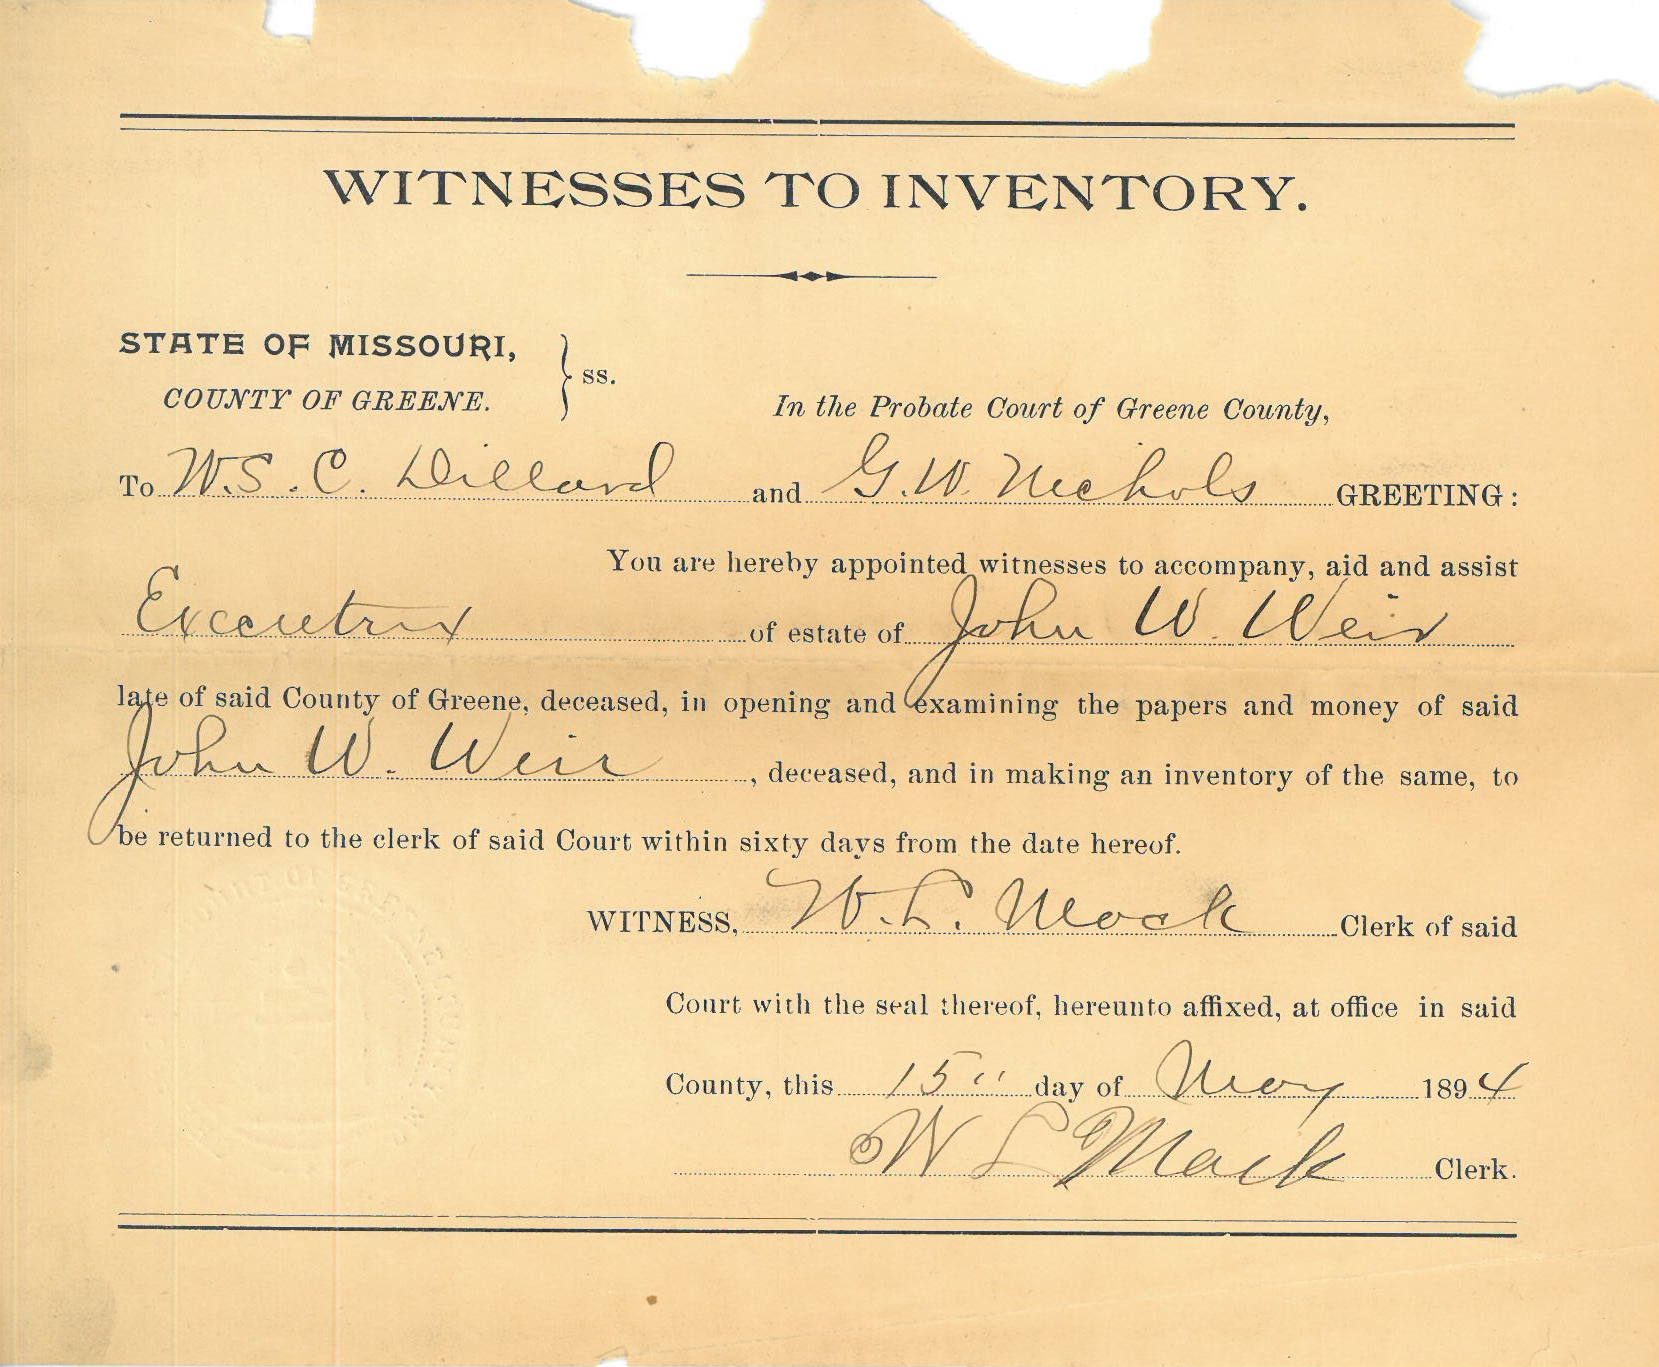 WITNESSES TO INVENTORY.
STATE OF MISSOURI,
COUNTY OF GREENE.
ss.
In the Probate Court of Greene County,
To W. S. C. Dillard and G. W. Nichols GREETING:
You are hereby appointed witnesses to accompany, aid and assist
Executrix of estate of John W. Weir
late of said County of Greene, deceased, in opening and examining the papers and money of said
John W. Weir, deceased, and in making an inventory of the same, to
be returned to the clerk of said Court within sixty days from the date hereof.
WITNESS, W. L. Mack Clerk of said
Court with the seal thereof, hereunto affixed, at office in said
County, this 15" day of May 1894
W L Mack Clerk.